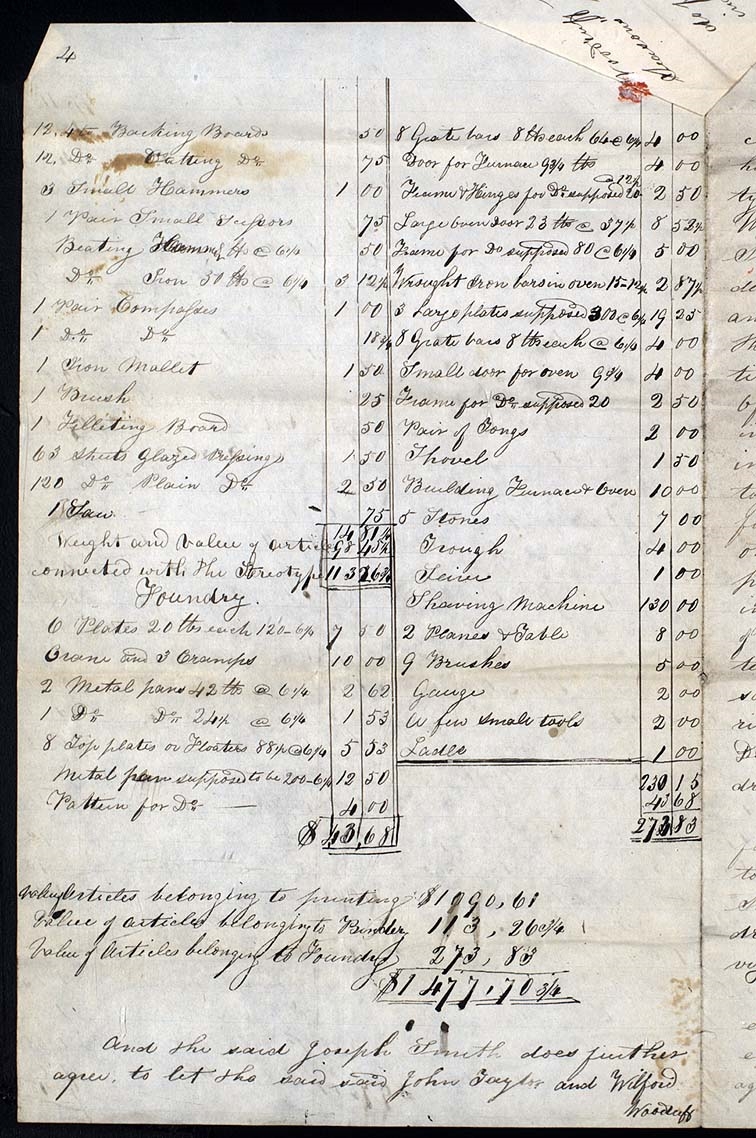 4
12. 4to Backing Boards 50
12. Do Cutting Do 75
3 Small Hammers 1 00
1 Pair Small Scissors 75
Beating Hammer lbs @ 6¼ 50
Do Iron 50 lbs @ 6¼ 3 12½
1 Pair Compasses 1 00
1 Do Do 18¾
1 Iron Mallet 1 50
1 Brush 25
1 Filleting Board 50
63 Sheets Glazed Pressing 1 50
120 Do Plain Do 2 50
1 Saw 75
14 81¼
98 45½
Weight and Value of articles
connected with the Streotype 113 26¾
Foundry.
6 Plates 20 lbs each 120-6¼ 7 50
Crane and 3 Cramps 10 00
2 Metal pans 42 lbs @ 6¼ 2 62
1 Do Do 24½ @ 6¼ 1 53
8 Top plates or Floaters 88½ @ 6¼ 5 53
Metal pan supposed to be 200-6¼ 12 50
Pattern for Do 4 00
$ 43,68
8 Grate bars 8 lbs each 64 @ 6¼ 4 00
Door for Furnace 9¾ lbs 4 00
@ 12½
Frame & Hinges for Do supposed 20 2 50
Large Oven Door 23 lbs @ 37½ 8 52½
Frame for Do supposed 80 @ 6¼ 5 00
Wrought Iron bars in oven 15-12½ 2 87½
3 Large plates supposed 308 @ 6¼ 19 25
8 Grate bars 8 lbs each @ 6¼ 4 00
Small door for oven 9¾ 4 00
Frame for Do supposed 20 2 50
Pair of Tongs 2 00
Shovel 1 50
Building Furnace & Oven 10 00
5 Stones 7 00
Trough 4 00
Seive 1 00
Shaving Machine 130 00
2 Planes & Table 8 00
9 Brushes 5 00
Gauge 2 00
A few small tools 2 00
Ladle 1 00
230 15
43 68
273 83
Value of Articles belonging to printing $1090,61
Value of articles belonging to Bindery 113,26¾
Value of Articles belonging to Foundry 273,83
$1477,70¾
And the said Joseph Smith does further
agree, to let the said said John Taylor and Wilford
Woodruff